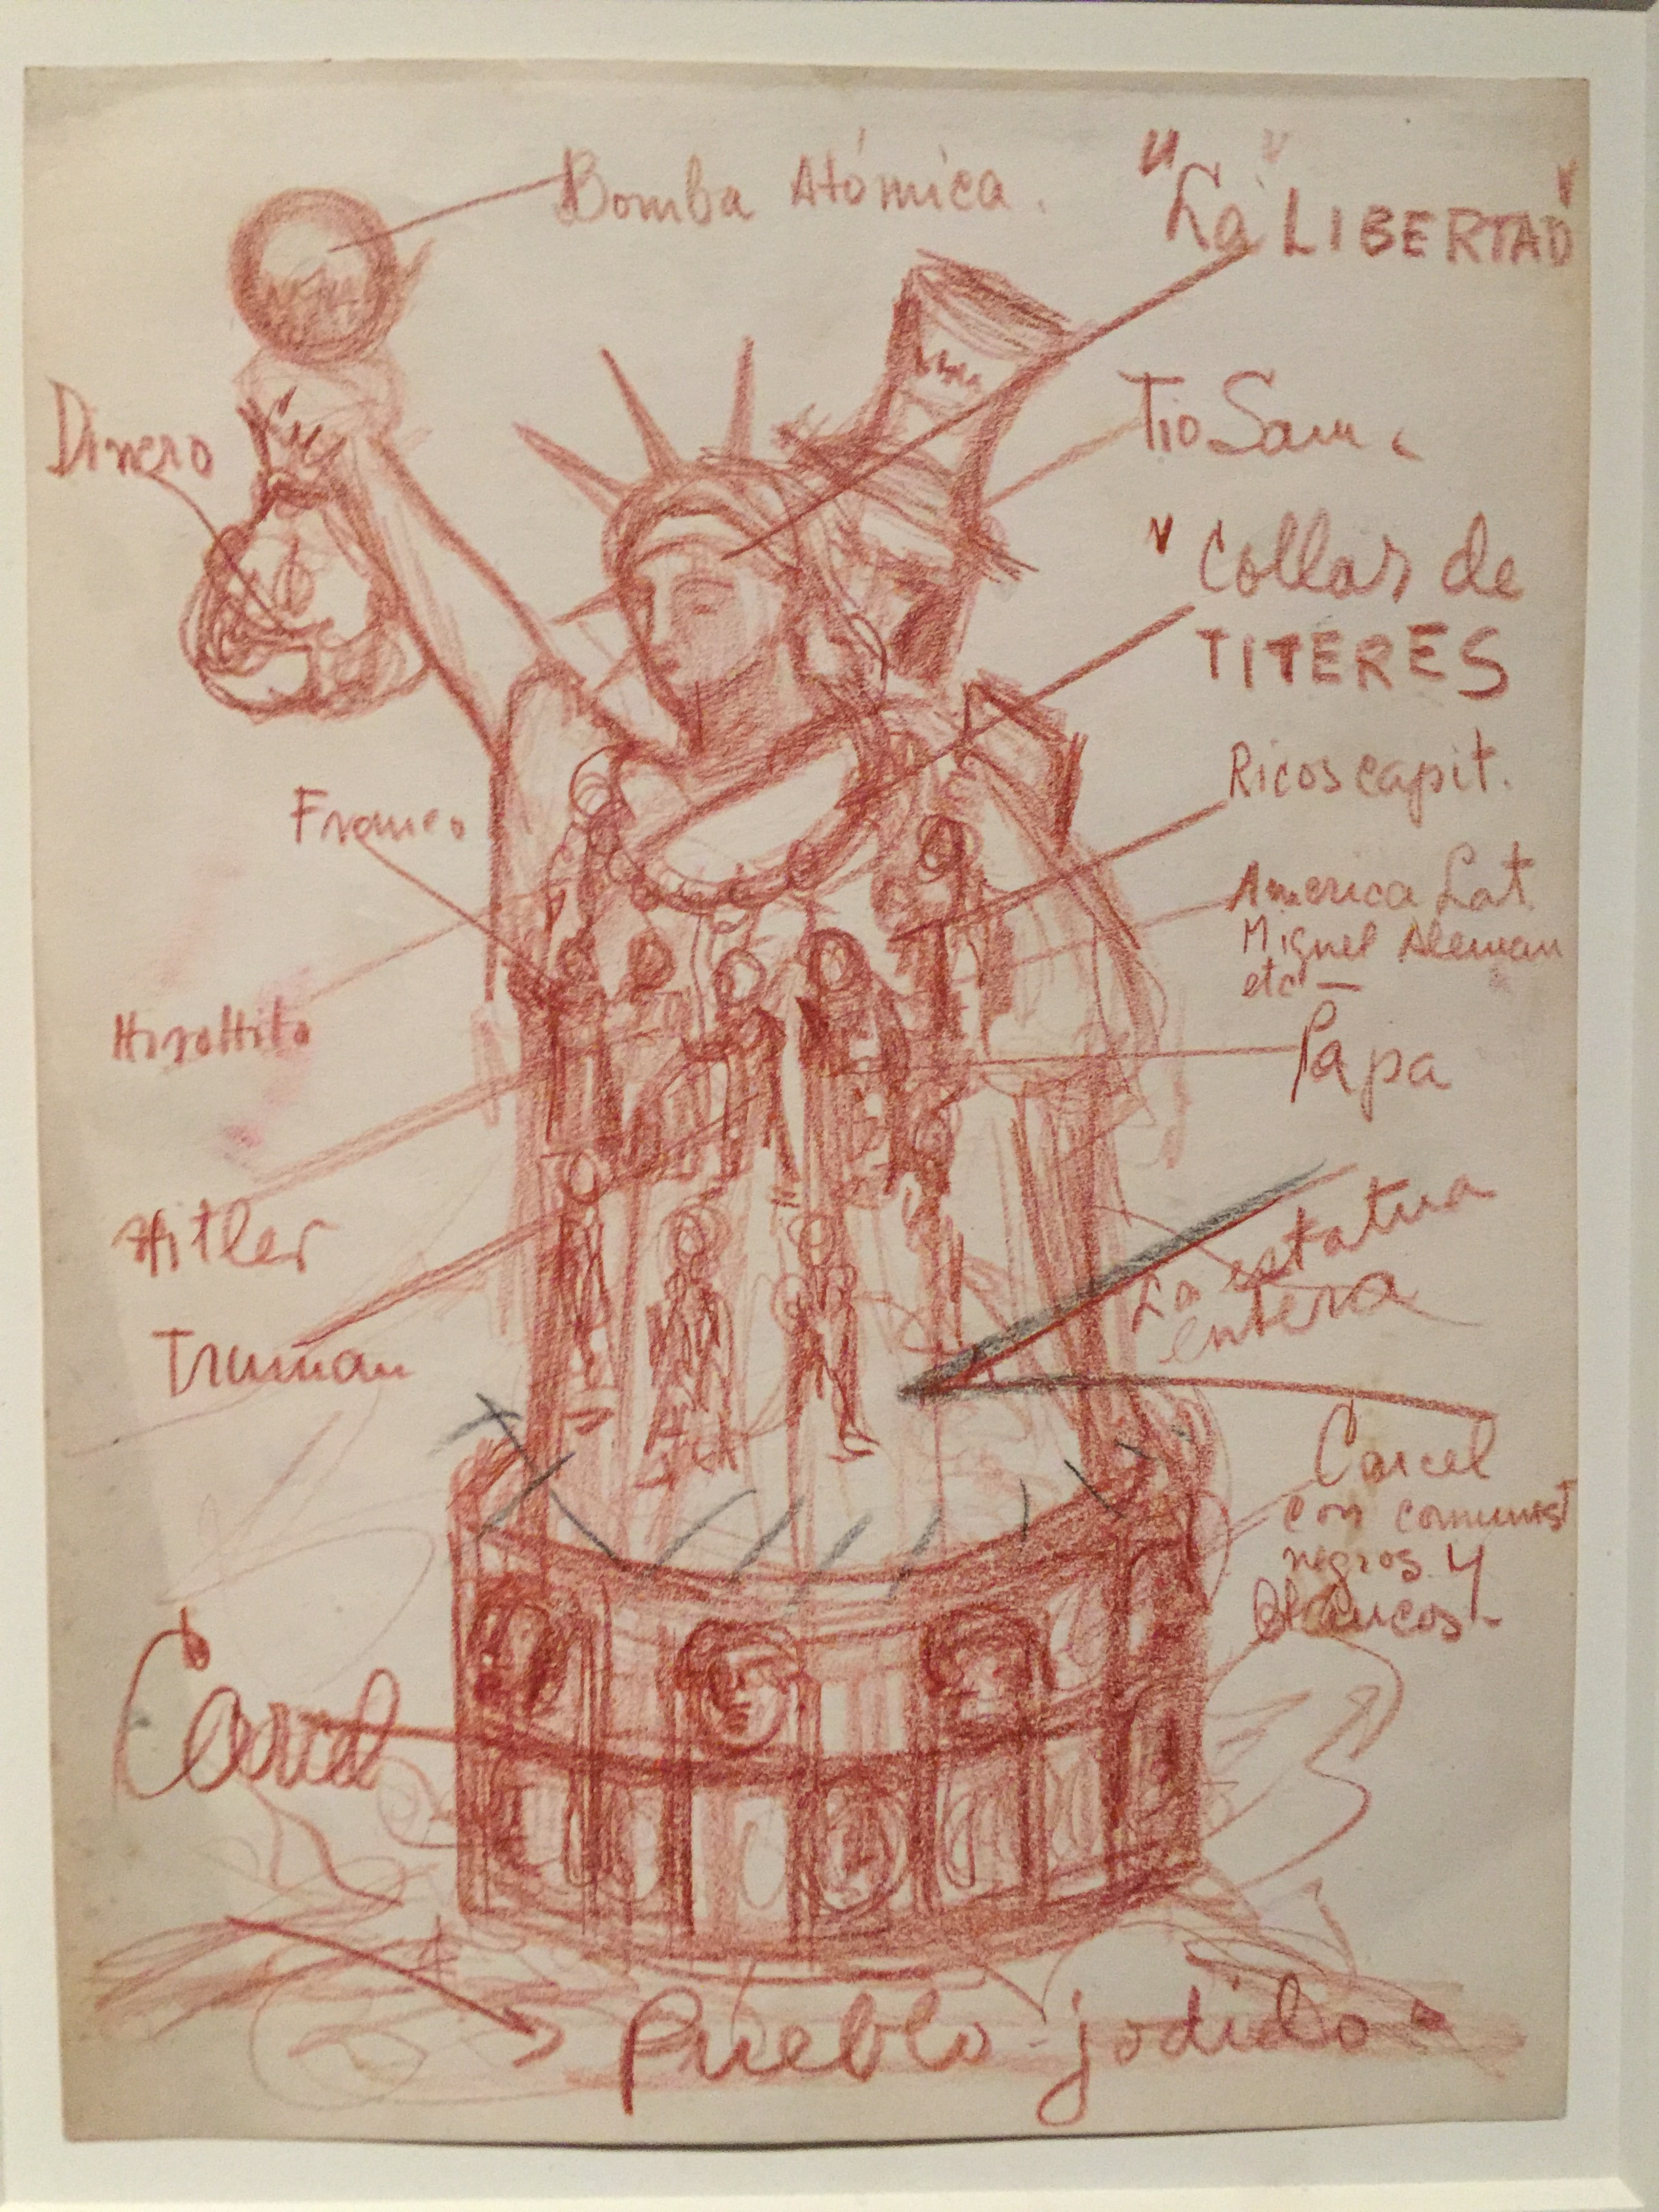 Bomba Atómica.
"La" LIBERTAD"
Dinero
Tio Sam.
"Collar de
TITERES
Ricos capit.
Franco
America Lat
Miguel Aleman
etc —
HiroHito
Papa
Hitler
La estatua
entera
Truman
Carcel
con comunist
negros y
blancos-
Carcel
Pueblo jodido"